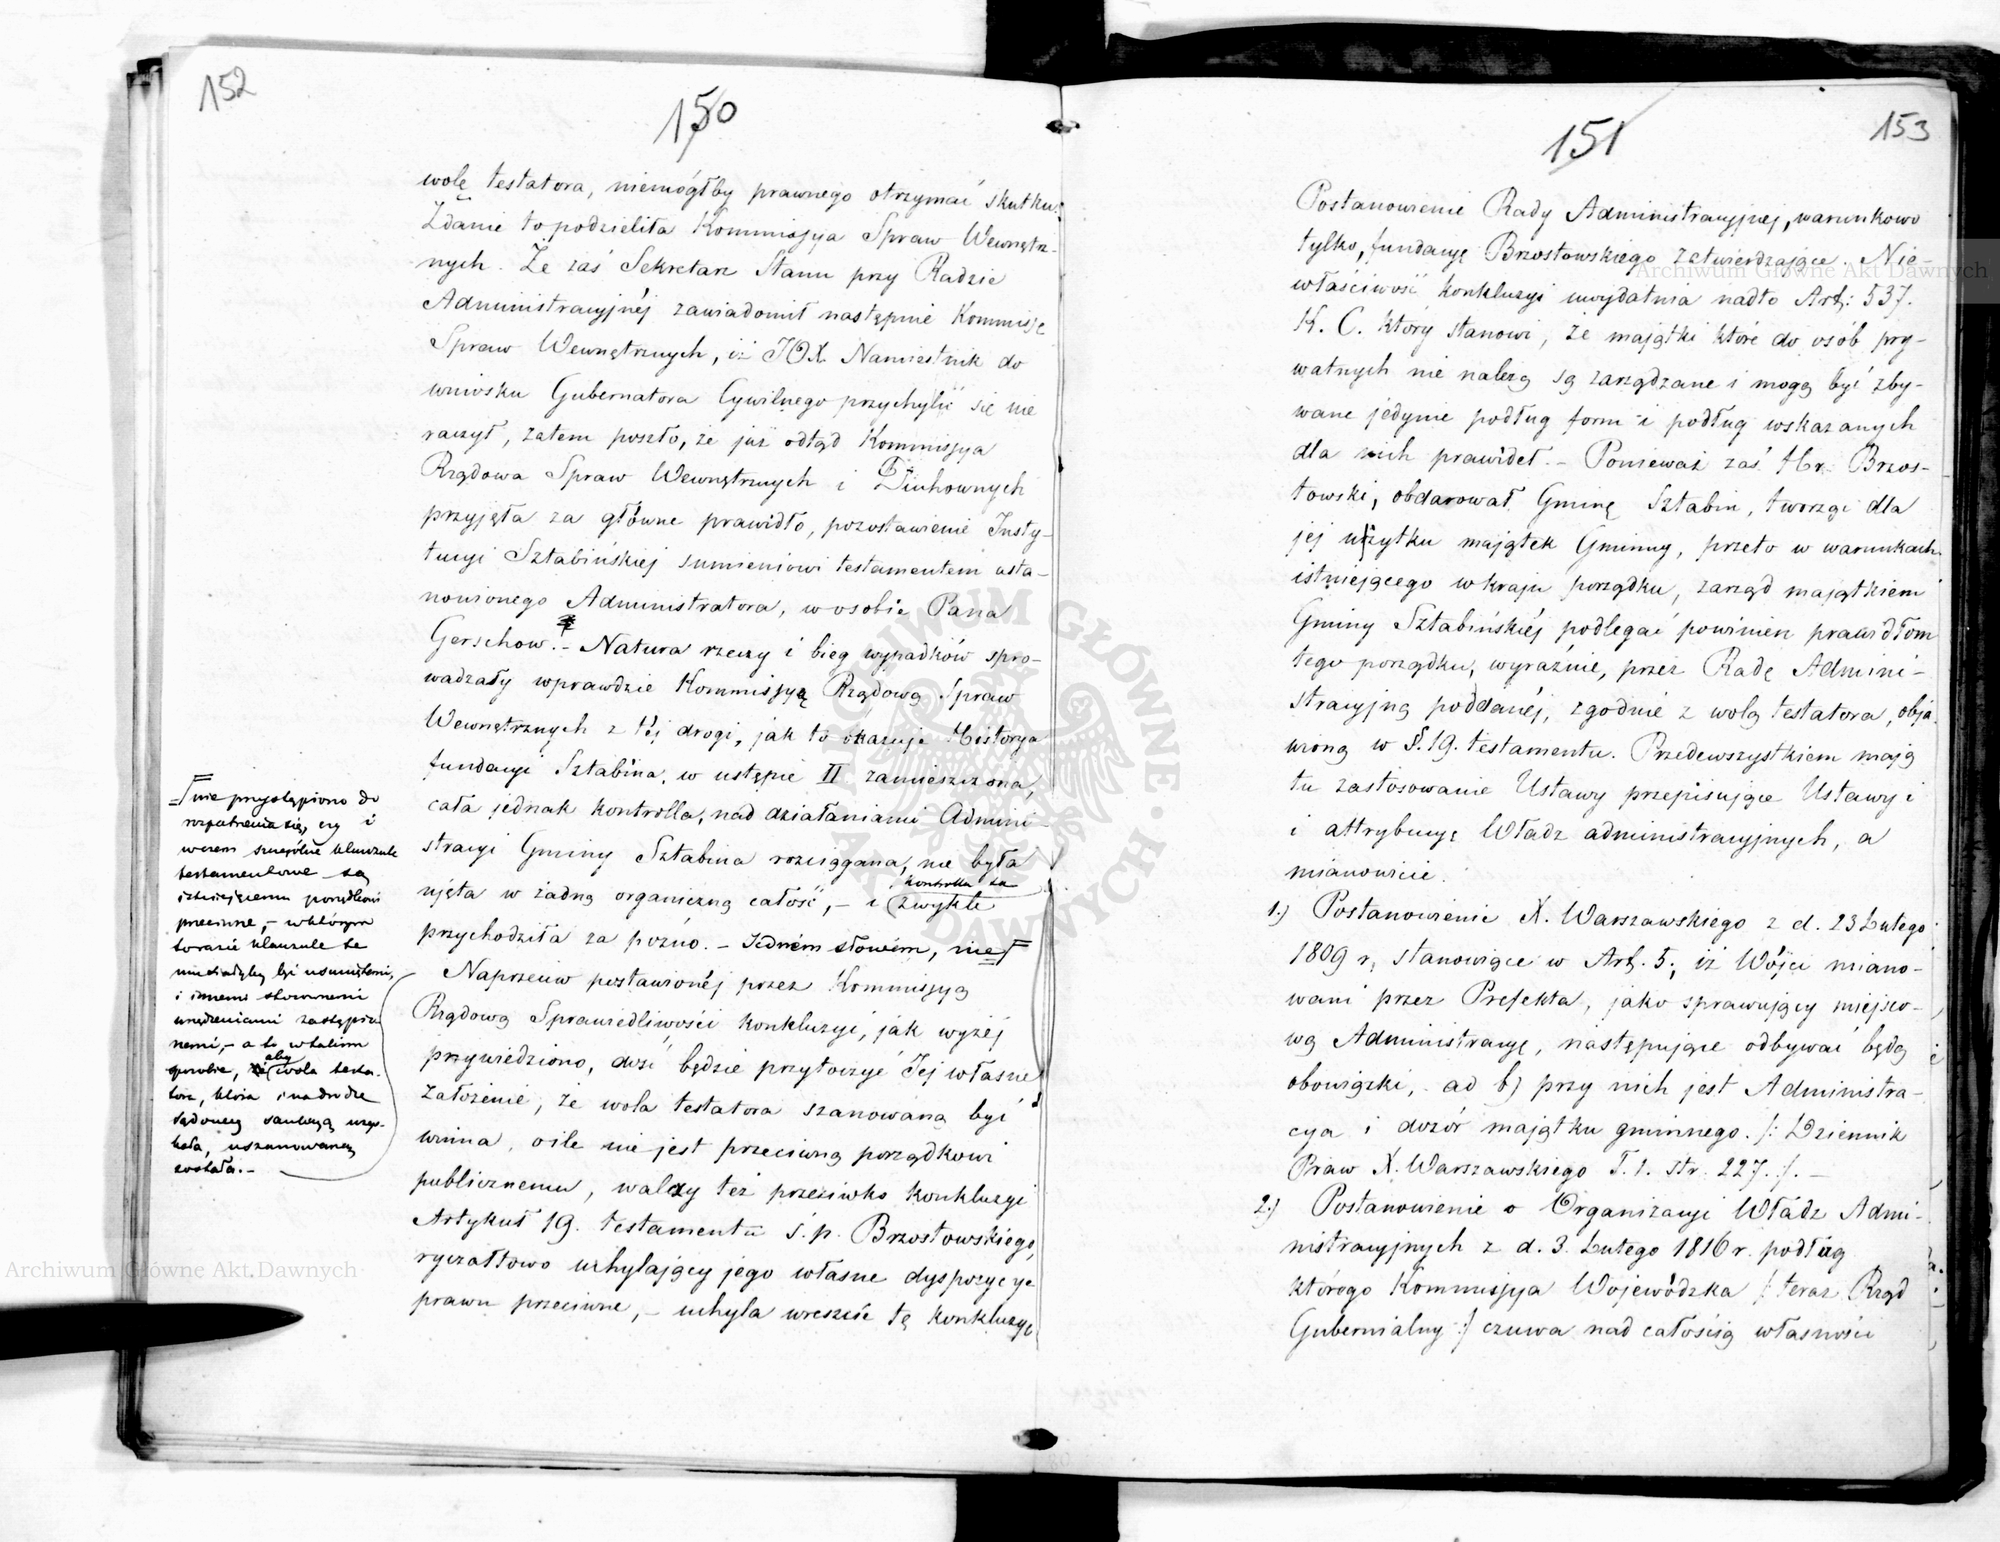 152
150
wolę testatora, niemógłby prawnego otrzymać skutku.
Zdanie to podzieliła Kommissya Spraw Wewnętrz-
nych. Że zaś Sekretarz Stanu przy Radzie
Administracyjnéj zawiadomił następnie Kommisję
Spraw Wewnętrznych, iż JOX Namiestnik do
wniosku Gubernatora Cywilnego przychylić się nie
raczył, zatem poszło, że już odtąd Kommissya
Rządowa Spraw Wewnętrznych i Duchownych
przyjęła za główne prawidło, pozostawienie Insty-
tucyi Sztabińskiej sumieniowi testamentem usta-
nowionego Administratora, w osobie Pana
Gerschow. - Natura rzeczy i bieg wypadków spro-
wadzały wprawdzie Kommissyą Rządową Spraw
Wewnętrznych z téj drogi, jak to okazuje Historya
fundacyi Sztabina, w ustępie II zamieszczona,
cała jednak kontrolla, nad działaniami Admini-
stracyi Gminy Sztabina rozciągana, nie była
ujęta w żadną organiczną całość, - i zwykle
kontrolla ta
przychodziła za późno. - Jedném słowem, nie
nie przystąpiono do
rozpatrzenia się, czy i
w czem szczególne klauzule
testamentowe są
istniejącemu porządkowi
przeciwne, - w którym
to razie klauzule te
musiałyby być usuniętemi,
i innemi stosownemi
urządzeniami zastąpio-
nemi, - a to w takim
sposobie, aby wola testa-
tora, która i na drodze
sądowej sankcyą uzys-
kała, uszanowaną
została. -
Naprzeciw postawionéj przez Kommissyą
Rządową Sprawiedliwości konkluzyi, jak wyżéj
przywiedziono, dość będzie przytoczyć Jej własne
założenie, że wola testatora szanowaną być
winna, o ile nie jest przeciwną porządkowi
publicznemu, walczy też przeciwko konkluzyi
Artykuł 19. testamentu ś. p. Brzostowskiego,
ryczałtowo uchylający jego własne dyspozycye
prawu przeciwne, - uchyla wreszcie tę konkluzyę
151
153
Postanowienie Rady Administracyjnej, warunkowo
tylko, fundacyę Brzostowskiego zatwierdzające. Nie-
właściwość konkluzyi uwydatnia nadto Art: 537.
K. C. który stanowi, że majątki które do osób pry-
watnych nie należą są zarządzane i mogą być zby-
wane jedynie podług form i podług wskazanych
dla nich prawideł. - Ponieważ zaś Hr. Brzos-
towski, obdarował Gminę Sztabin, tworząc dla
jej użytku majątek Gminny, przeto w warunkach
istniejącego w kraju porządku, zarząd majątkiem
Gminy Sztabińskiéj podlegać powinien prawidłom
tego porządku, wyraźnie, przez Radę Admini-
stracyjną poddanéj, zgodnie z wolą testatora, obja-
wioną w §. 19. testamentu. Przedewszystkiem mają
tu zastosowanie Ustawy przepisujące Ustawy i
i attrybucyę Władz administracyjnych, a
mianowicie.
1.) Postanowienie X. Warszawskiego z d. 23 Lutego
1809 r, stanowiące w Art. 5; iż Wójci miano-
wani przez Prefekta, jako sprawujący miejsco-
wą Administracyę, następujące odbywać będą
obowiązki, ad b) przy nich jest Administra-
cya i dozór majątku gminnego. /: Dziennik
Praw X. Warszawskiego T. 1. str. 227. /. -
2.) Postanowienie o Organizacyi Władz Admi-
nistracyjnych z d. 3. Lutego 1816 r. podług
którego Kommissya Wojewódzka /: teraz Rząd
Gubernialny :/ czuwa nad całością własności
Archiwum Główne Akt Dawnych
Archiwum Główne Akt Dawnych
ARCHIWUM GŁÓWNE AKT DAWNYCH